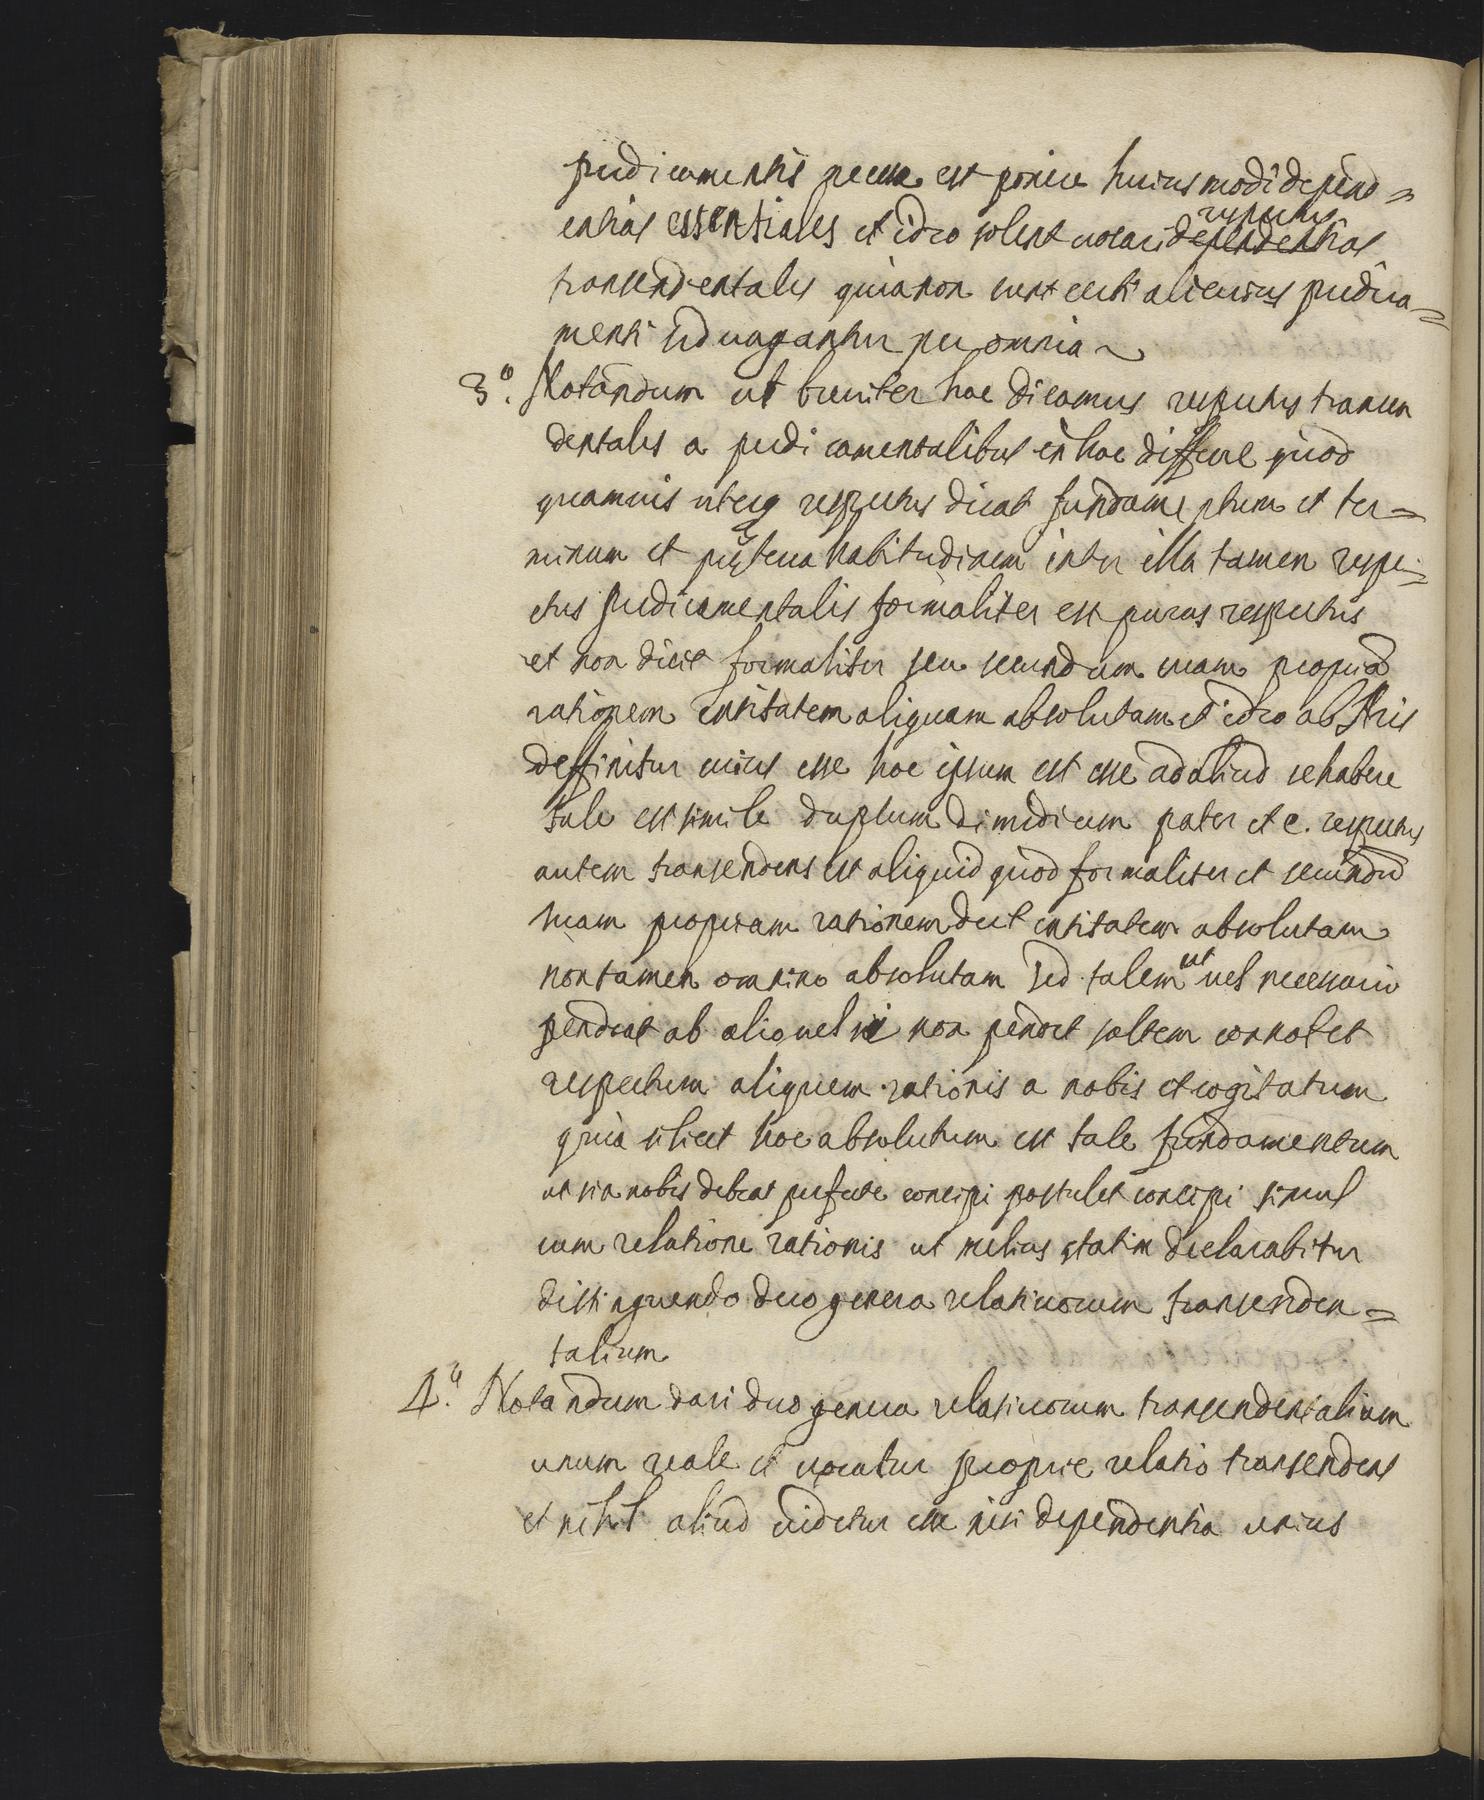 predicamentis necesse est ponere huiusmodi depend=
entias essentiales et ideo solent uocari dependentias respectus
transendentales quia non sunt certi alicuius predica=
menti sed uagantur per omnia
3.º Notandum ut breuiter hoc dicamus respectus transen
dentales a predicamentalibus in hoc differre quod
quamuis uterq respectus dicat fundamentum et ter=
minum et preterea habitudinem inter illa tamen respe=
ctus predicamentalis formaliter est purus respectus
et non dicit formaliter seu secundum suam propriã
rationem entitatem aliquam absolutam et ideo ab Aris
deffinitur cuius esse hoc ipsum est esse ad aliud se habere
tale est simile duplum dimidium pater et c. respectus
autem transendens est aliquid quod formaliter et secundũ
suam propriam rationem dicit entitatem absolutam
non tamen omnino absolutam sed talem ut uel necessario
pendeat ab alio uel si non pendet saltem connotet
respectum aliquem rationis a nobis excogitatum
quia silicet hoc absolutum est tale fundamentum
ut si a nobis debeat perfecte concipi postulet concipi simul
cum relatione rationis ut melius statim declarabitur
distinguendo duo genera relatiuorum transenden=
talium
4.º Notandum dari duo genera relatiuorum transendentalium
unum reale et uocatur proprie relatio transendens
et nihil aliud uidetur esse nisi dependentia unius